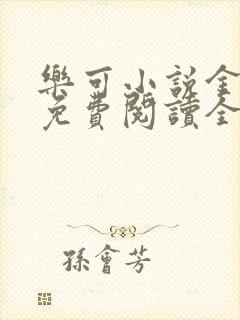 樂可小說全
免費閱讀全
孫會芳